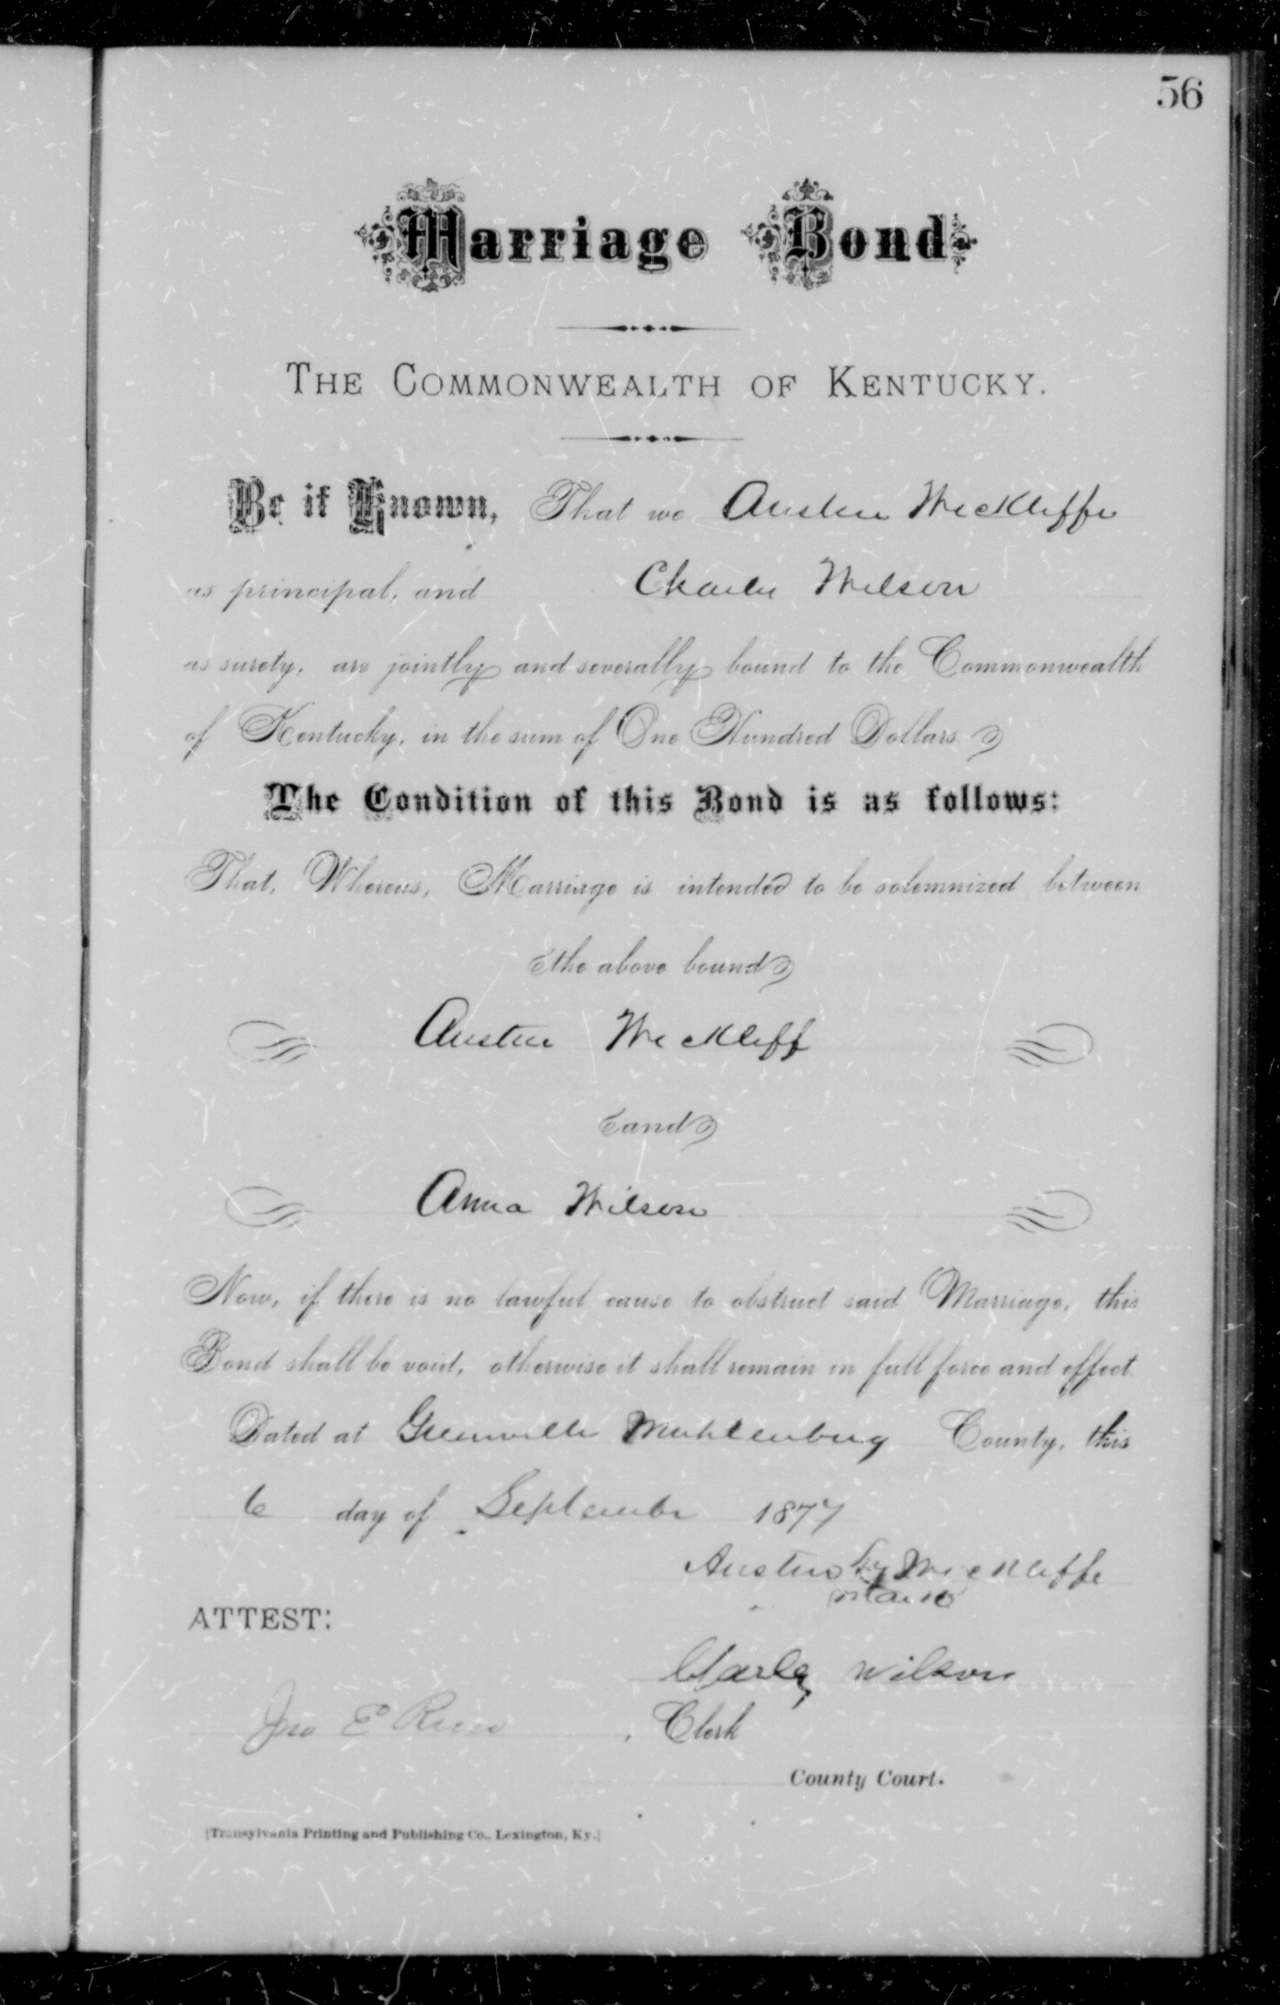 56
Marriage Bond
THE COMMONWEALTH OF KENTUCKY.
Be it Known, That we Austin Wickliffe
as principal, and Charley Wilson
as surety, are jointly and severally bound to the Commonwealth
of Kentucky, in the sum of One Hundred Dollars.
The Condition of this Bond is as follows:
That, Whereas, Marriage is intended to be solemnized between
the above bound
Austin Wickliff
and
Anna Wilson
Now, if there is no lawful cause to obstruct said Marriage, this
Bond shall be void, otherwise it shall remain in full force and effect.
Dated at Greenville Muhlenburg County, this
6 day of September 1877
Austin by Wickliffe
mark
ATTEST:
Charley Wilson
Jno E Reno, Clerk
County Court.
[Transylvania Printing and Publishing Co., Lexington, Ky.]